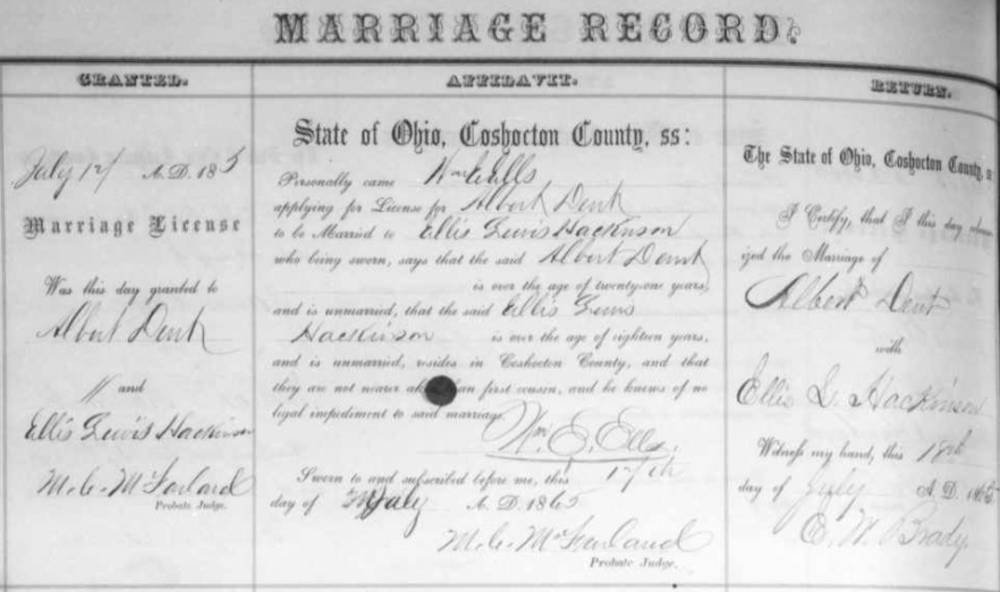 MARRIAGE RECORD.
GRANTED.
July 17 A. D. 1865
Marriage License
Was this day granted to
Albert Dent
and
Ellis Lewis Hackinson
M. C. McFarland
Probate Judge.
AFFIDAVIT.
State of Ohio, Coshocton County, ss:
Personally came Wm E Ells
applying for License for Albert Dent
to be Married to Ellis Lewis Hackinson
who being sworn, says that the said Albert Dent
is over the age of twentyone years,
and is unmarried, that the said Ellis Lewis
Hackinson is over the age of eighteen years,
and is unmarried, resides in Coshocton County, and that
they are not nearer akin than first cousin, and he knows of no
legal impediment to said marriage
Wm. E. Ells.
Sworn to and subscribed before me, this 17th
day of July A. D. 1865
M. C. McFarland
Probate Judge.
RETURN.
The State of Ohio, Coshocton County, s
I Certify, that I this day
ized the Marriage of
Albert Dent
with
Ellis L. Hackinson
Witness my hand, this 18th
day of July A. D. 1865
E. W. Brady.